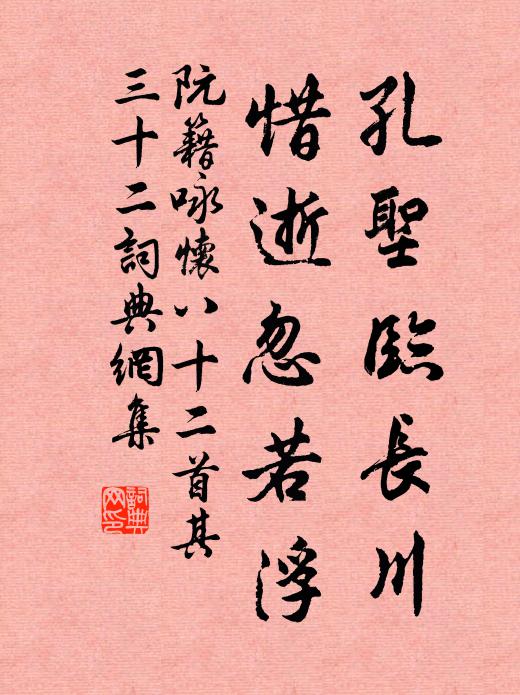 孔聖臨長川
惜逝忽若浮
阮籍咏懷八十二首其
三十二詞典網集
詞典网印